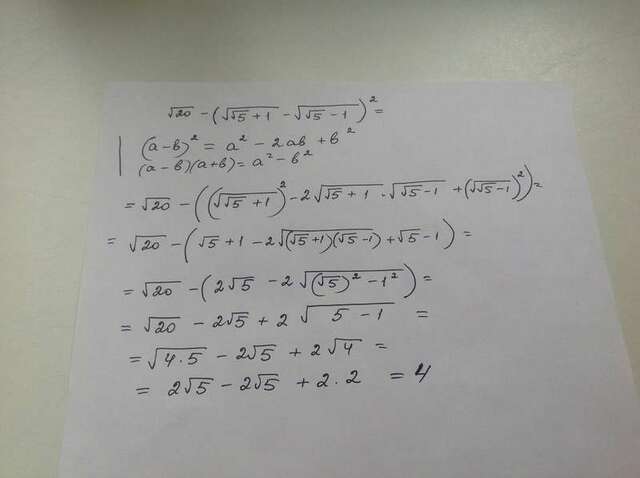 √20 − (√(√5 + 1) − √(√5 − 1))² =
(a − b)² = a² − 2ab + b²
(a − b)(a + b) = a² − b²
= √20 − ((√(√5 + 1))² − 2√(√5 + 1) · √(√5 − 1) + (√(√5 − 1))²) =
= √20 − (√5 + 1 − 2√((√5 + 1)(√5 − 1)) + √5 − 1) =
= √20 − (2√5 − 2√((√5)² − 1²)) =
= √20 − 2√5 + 2√(5 − 1) =
= √(4 · 5) − 2√5 + 2√4 =
= 2√5 − 2√5 + 2 · 2 = 4